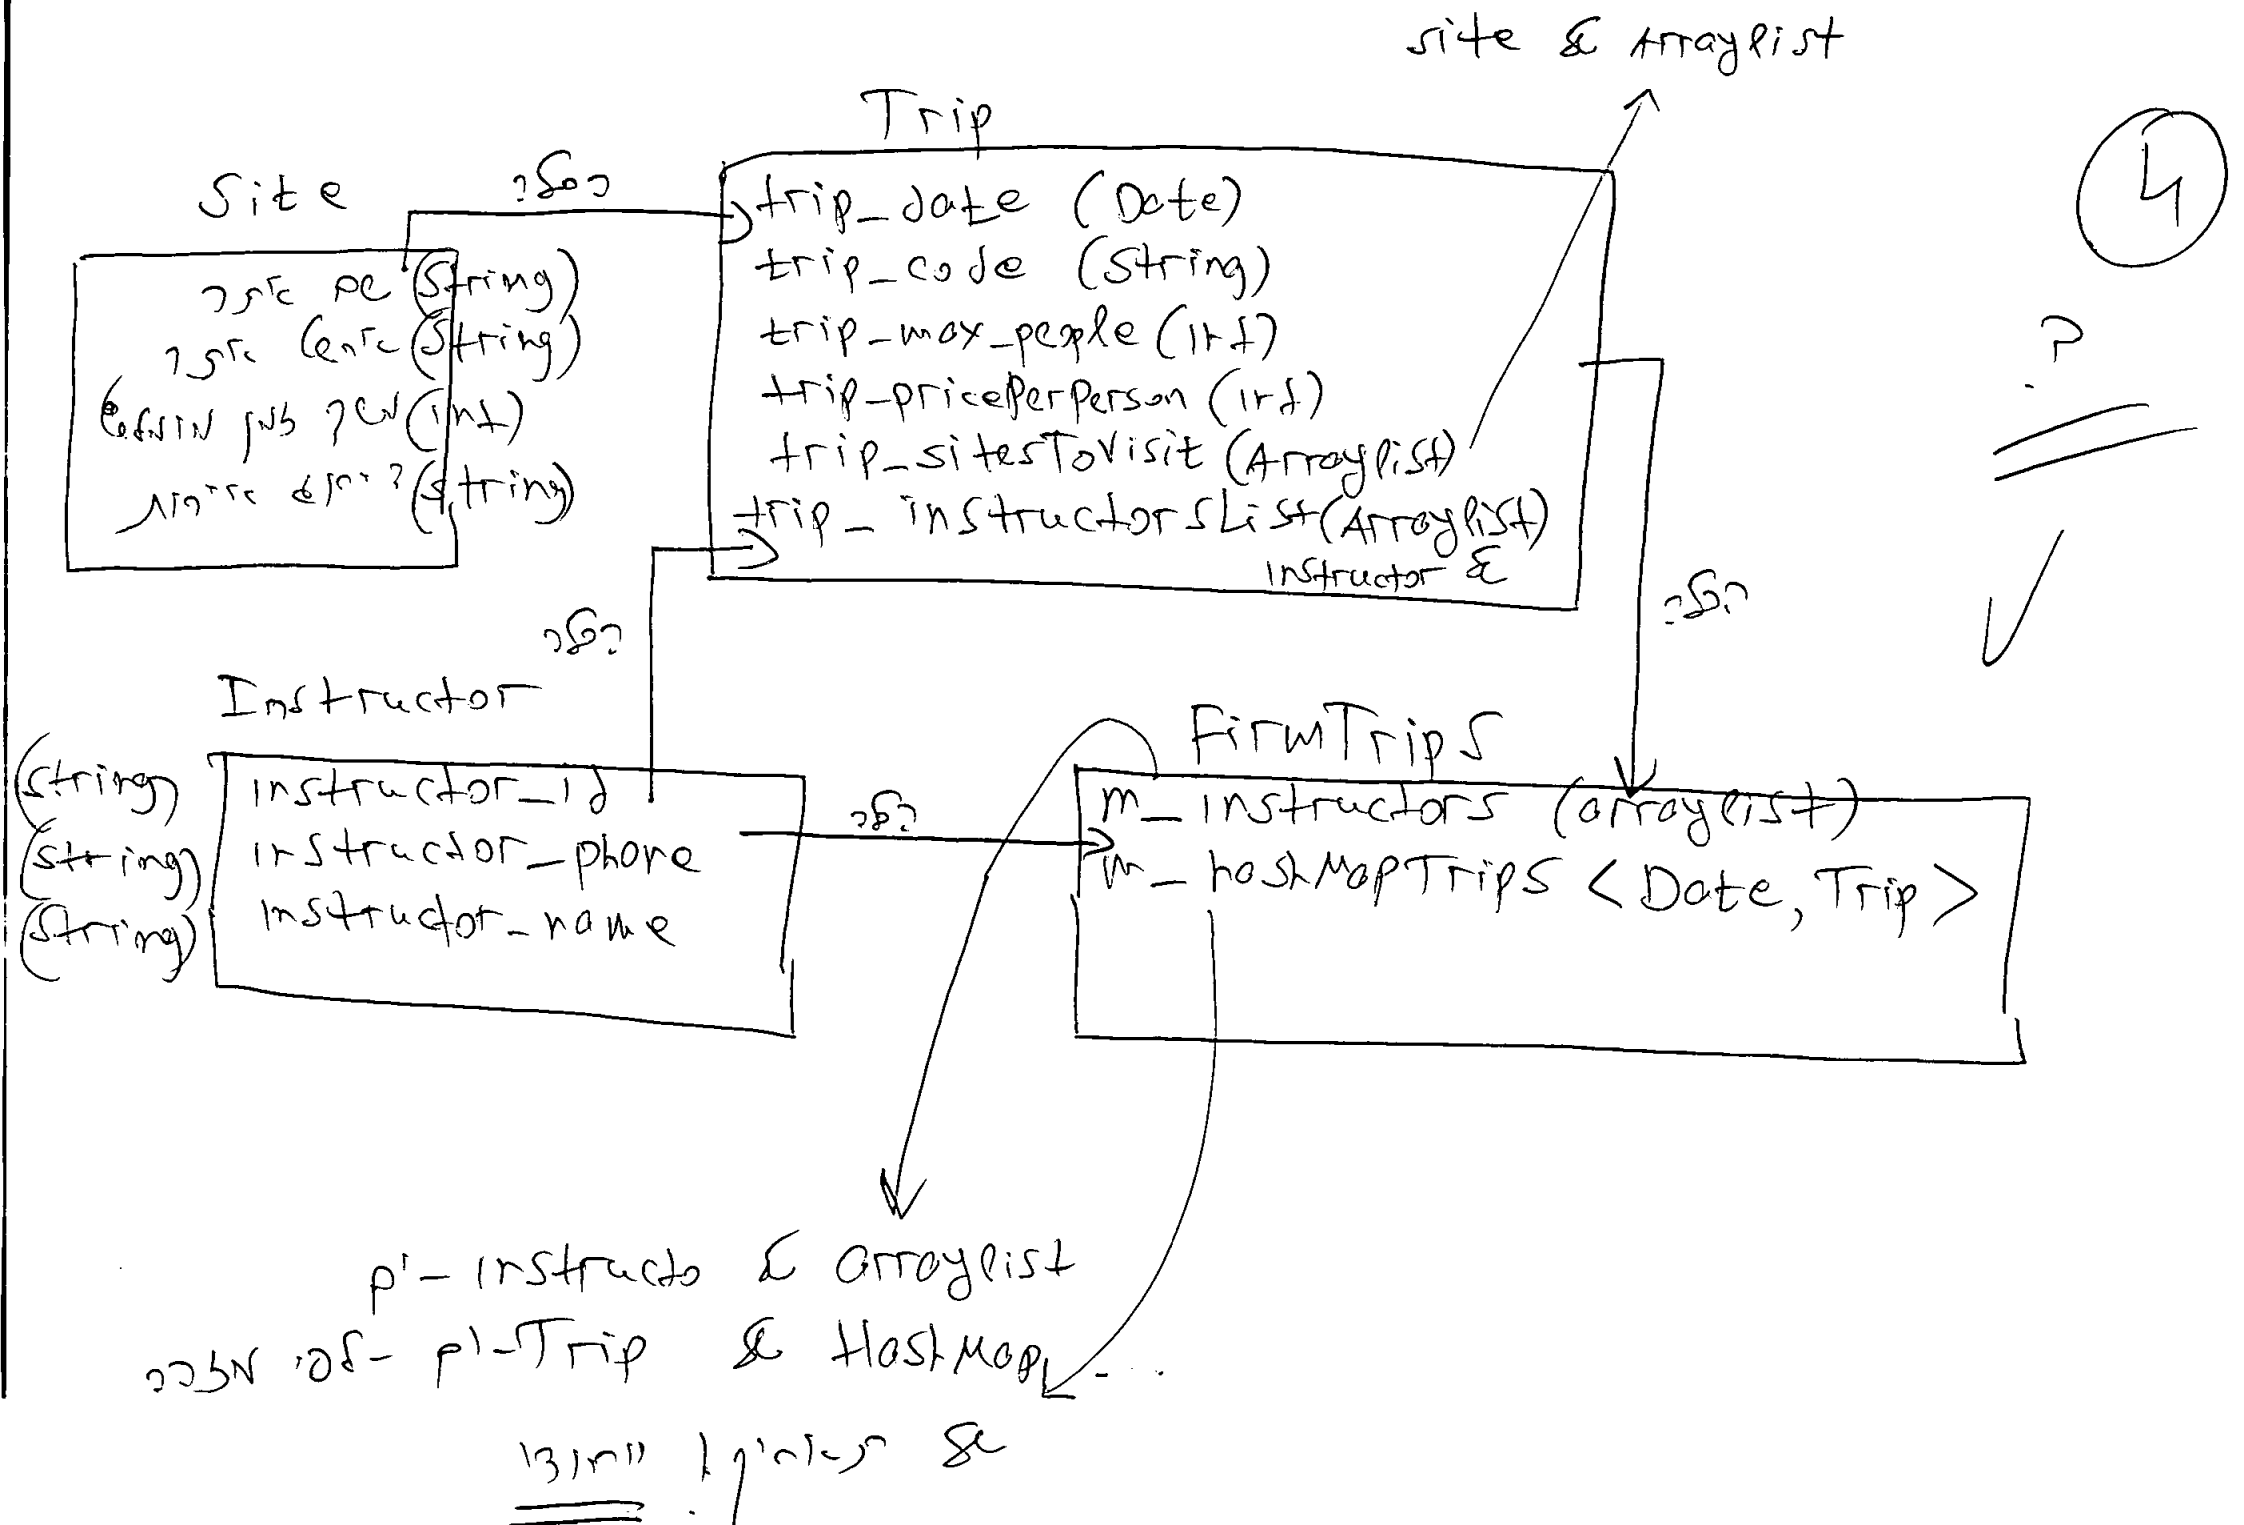 site של Arraylist
4
Trip
Site
הכלה
trip_date (Date)
trip_code (String)
trip_max_people (int)
trip_pricePerPerson (int)
trip_sitesToVisit (Arraylist)
trip_instructorsList (Arraylist)
instructor של
שם אתר (String)
אתר (String)
משך זמן (int)
(String)
?
הכלה
הכלה
Instructor
(string) instructor_id
(string) instructor_phone
(string) instructor_name
הכלה
FirmTrips
m_instructors (arraylist)
m_hashMapTrips <Date, Trip>
instructo-ים של arraylist
HashMap של Trip-ים - לפי
של תאריך